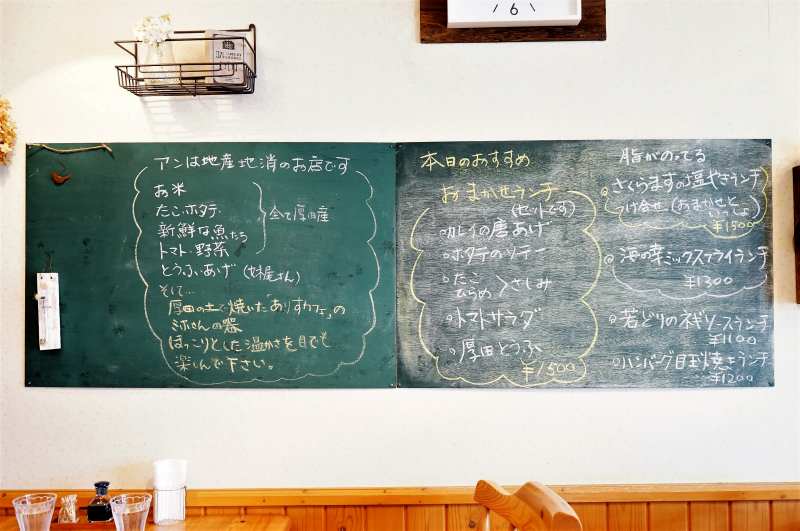 アンは地産地消のお店です
お米
たこ・ホタテ
新鮮な魚たち
トマト・野菜
全て厚田産
とうふ、あげ
そして…
厚田の土で焼いた「ありすカフェ」の
器
ほっこりとした温かさを目でも
楽しんで下さい。
本日のおすすめ
おまかせランチ
(セットです)
カレイの唐あげ
ホタテのソテー
たこ
ひらめ
さしみ
トマトサラダ
厚田とうふ
¥1500
脂がのってる
さくらますの塩やきランチ
つけ合せ(おまかせと
いっしょ)
¥1500
海の幸ミックスフライランチ
¥1300
若どりのネギソースランチ
¥1100
ハンバーグ目玉焼きランチ
¥1200
6